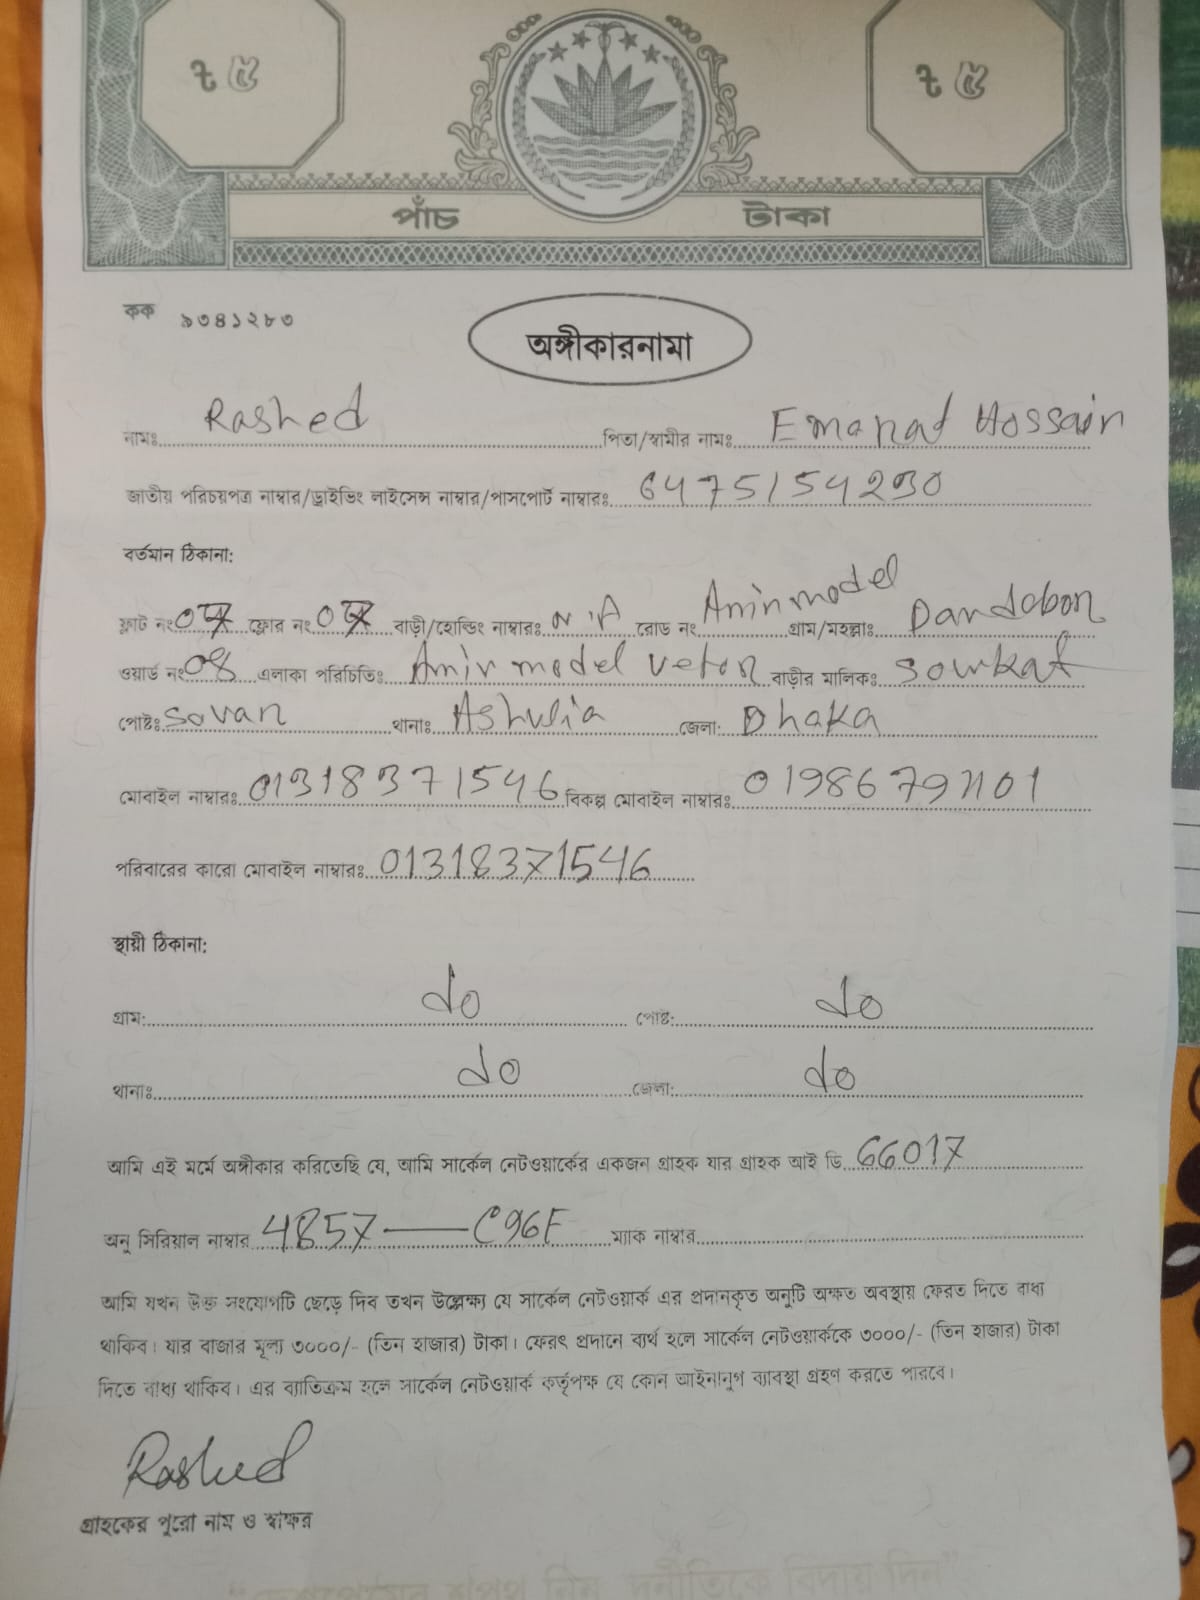 ৳ ৫ ৳ ৫
পাঁচ টাকা
কক ৯৩৪১২৮৩
অঙ্গীকারনামা
নামঃ Rashed পিতা/স্বামীর নামঃ Emanat Hossain
জাতীয় পরিচয়পত্র নাম্বার/ড্রাইভিং লাইসেন্স নাম্বার/পাসপোর্ট নাম্বারঃ 6475154230
বর্তমান ঠিকানা:
ফ্লাট নং ফ্লোর নং বাড়ী/হোল্ডিং নাম্বারঃ N/A রোড নং Amin model গ্রাম/মহল্লাঃ Dandabon
ওয়ার্ড নং 08 এলাকা পরিচিতিঃ Amin model veton বাড়ীর মালিকঃ Sowkat
পোষ্টঃ Savan থানাঃ Ashulia জেলা: Dhaka
মোবাইল নাম্বারঃ 01318371546 বিকল্প মোবাইল নাম্বারঃ
পরিবারের কারো মোবাইল নাম্বারঃ 01318371546
স্থায়ী ঠিকানা:
গ্রাম: do পোষ্ট: do
থানাঃ do জেলা: do
আমি এই মর্মে অঙ্গীকার করিতেছি যে, আমি সার্কেল নেটওয়ার্কের একজন গ্রাহক যার গ্রাহক আই ডি 66017
অনু সিরিয়াল নাম্বার 4857 — C96F ম্যাক নাম্বার
আমি যখন উক্ত সংযোগটি ছেড়ে দিব তখন উল্লেক্ষ্য যে সার্কেল নেটওয়ার্ক এর প্রদানকৃত অনুটি অক্ষত অবস্থায় ফেরত দিতে বাধ্য
থাকিব। যার বাজার মূল্য ৩০০০/- (তিন হাজার) টাকা। ফেরৎ প্রদানে ব্যর্থ হলে সার্কেল নেটওয়ার্ককে ৩০০০/- (তিন হাজার) টাকা
দিতে বাধ্য থাকিব। এর ব্যাতিক্রম হলে সার্কেল নেটওয়ার্ক কর্তৃপক্ষ যে কোন আইনানুগ ব্যাবস্থা গ্রহণ করতে পারবে।
Rashed
গ্রাহকের পুরো নাম ও স্বাক্ষর
“দেশপ্রেমের শপথ নিন, দুর্নীতিকে বিদায় দিন”